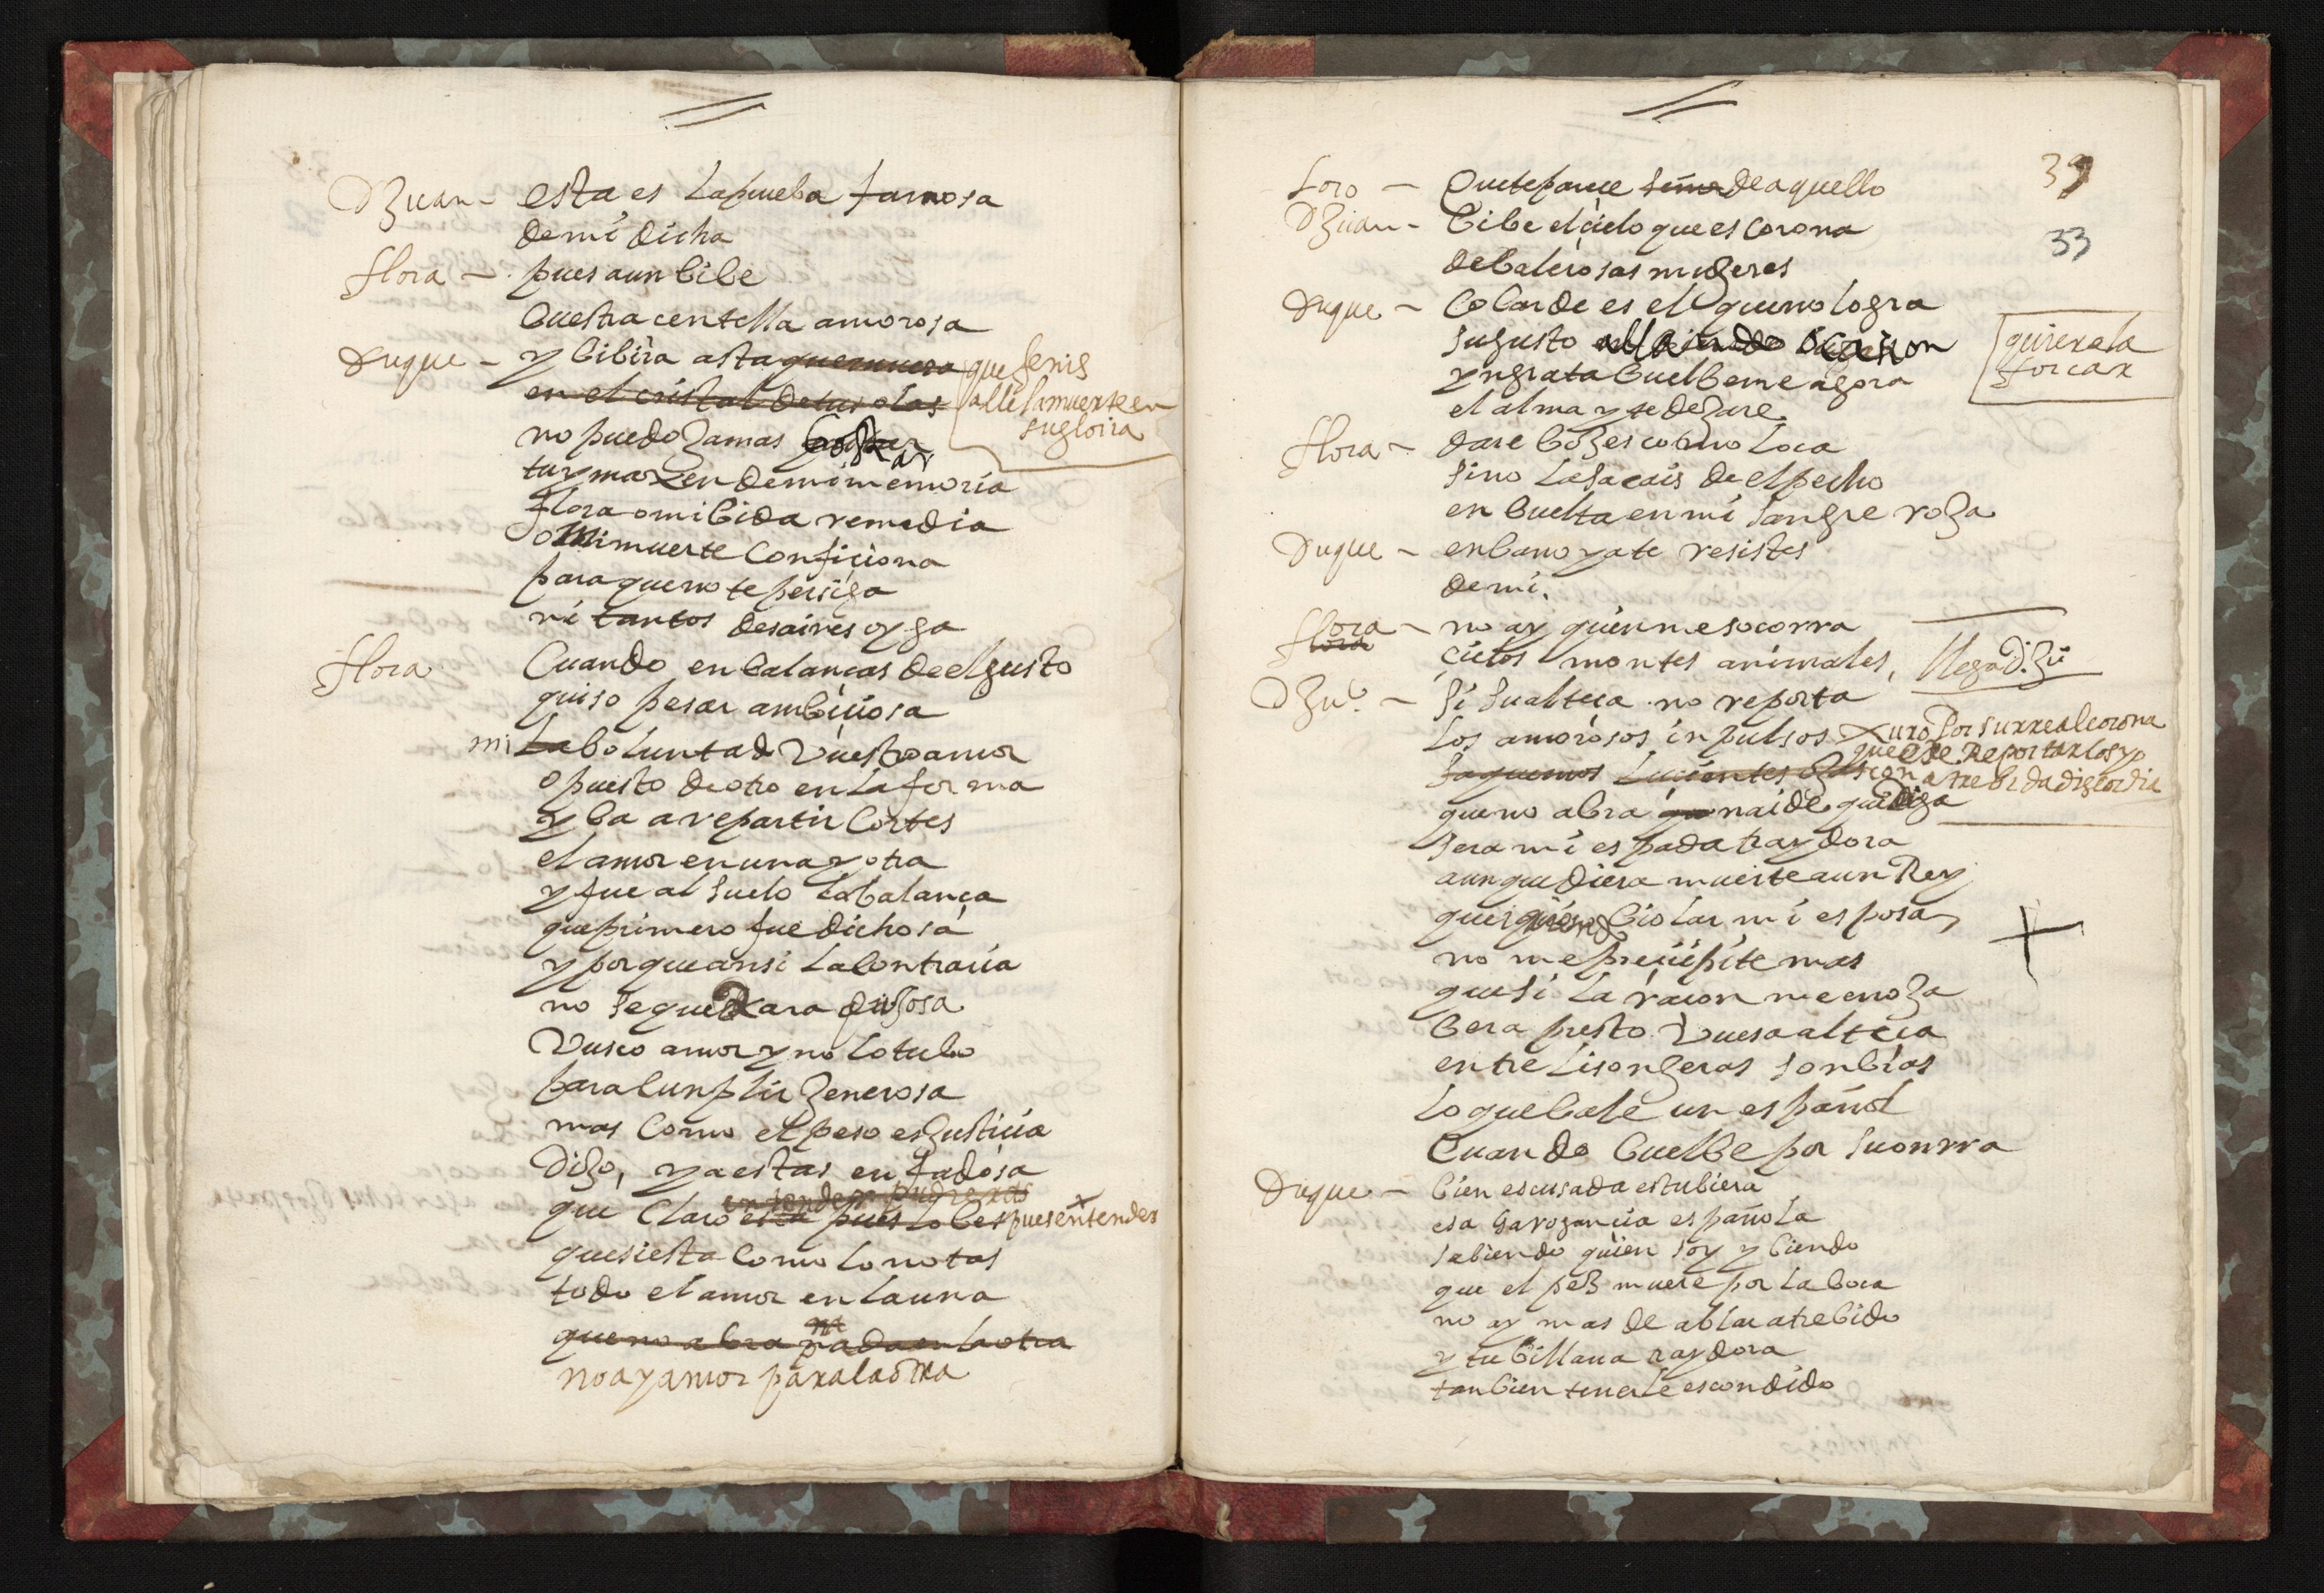 DJuan - esta es la prueba famosa
de mi dicha
flora - pues aun bibe
buestra centella amorosa
Duque - y bibira asta que muera
que fenis
en el cristal de tus olas
alle la muerte en
su gloria
no puedo jamas
tu ymaxen de mi memoria
flora o mi bida remedia
o mi muerte conficiona
para que no te persiga
ni tantos desaires oyga
flora Cuando en balanças de el gusto
quiso pesar ambiciosa
mi la boluntad vuestro amor
opuesto de otro en la forma
y ba a repartir cortes
el amor en una y otra
y fue al suelo la balança
que primero fue dichosa
y porque ansi la contraria
no se quedara quejosa
Vusco amor y no lo tubo
para cunplir jenerosa
mas como el peso es justicia
Dijo, ya estas enfadosa
entender
que claro esta pues lo bes pues entender
que si esta como lo notas
todo el amor en la una
que no abra nada en la otra
no ay amor para la otra
39
33
Loro - Que te parece señor de aquello
DJuan - bibe el cielo que es corona
de balerosas mujeres
Duque - cobarde es el que no logra
su gusto ocasion
quierela
forcar
yngrata buelbeme agora
el alma y te dejare
flora - dare bozes como loca
sino la sacais de el pecho
enbuelta en mi sangre roja
Duque - en bano ya te resistes
de mi.
flora - no ay quien me socorra
flora
cielos montes animales, llega D. Jû
DJuº - si su alteça no reporta
los amorosos inpulsos Xuro por su rreal corona
que de Reportarlos yo
saquemos lucientes ojas con atrebida discordia
que no abra naide que diga
sera mi espada traydora
aunque diera muerte a un Rey
que biolar mi esposa,
no me precipite mas
que si la raçon me enoja
bera presto vuesa alteça
entre lisonjeras sonbras
lo que bale un español
Cuando buelbe por su onrra
Duque - bien escusada estubiera
esa garogancia española
sabiendo quien soy y biendo
que el pez muere por la boca
no ay mas de ablar atrebido
y tu billana traydora
tanbien tenerle escondido